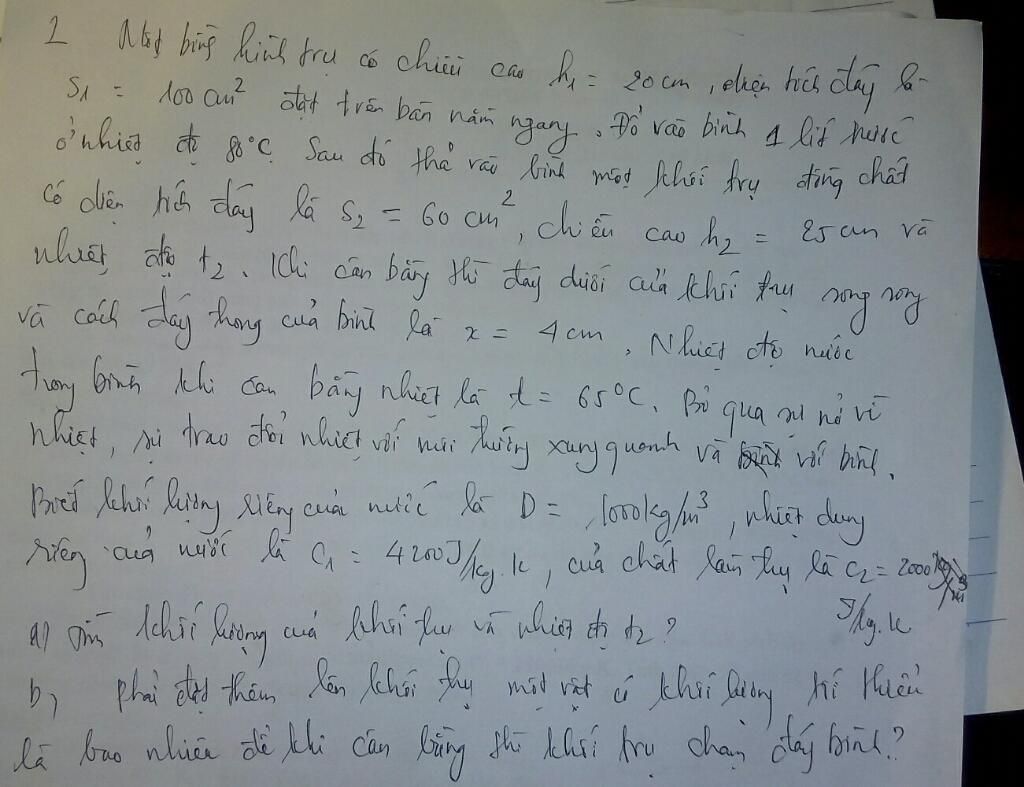 2 Một bình hình trụ có chiều cao h1 = 20 cm, diện tích đáy là
S1 = 100 cm² đặt trên bàn nằm ngang. Đổ vào bình 1 lít nước
ở nhiệt độ 80°C. Sau đó thả vào bình một khối trụ đồng chất
có diện tích đáy là S2 = 60 cm², chiều cao h2 = 25 cm và
nhiệt độ t2. Khi cân bằng thì đáy dưới của khối trụ song song
và cách đáy trong của bình là x = 4 cm. Nhiệt độ nước
trong bình khi cân bằng nhiệt là t = 65°C. Bỏ qua sự nở vì
nhiệt, sự trao đổi nhiệt với môi trường xung quanh và với bình.
Biết khối lượng riêng của nước là D = 1000kg/m³, nhiệt dung
riêng của nước là C1 = 4200J/kg.k, của chất làm trụ là C2 = 2000
J/kg.k
a) Tìm khối lượng của khối trụ và nhiệt độ t2?
b) phải đặt thêm lên khối trụ một vật có khối lượng tối thiểu
là bao nhiêu để khi cân bằng thì khối trụ chạm đáy bình?